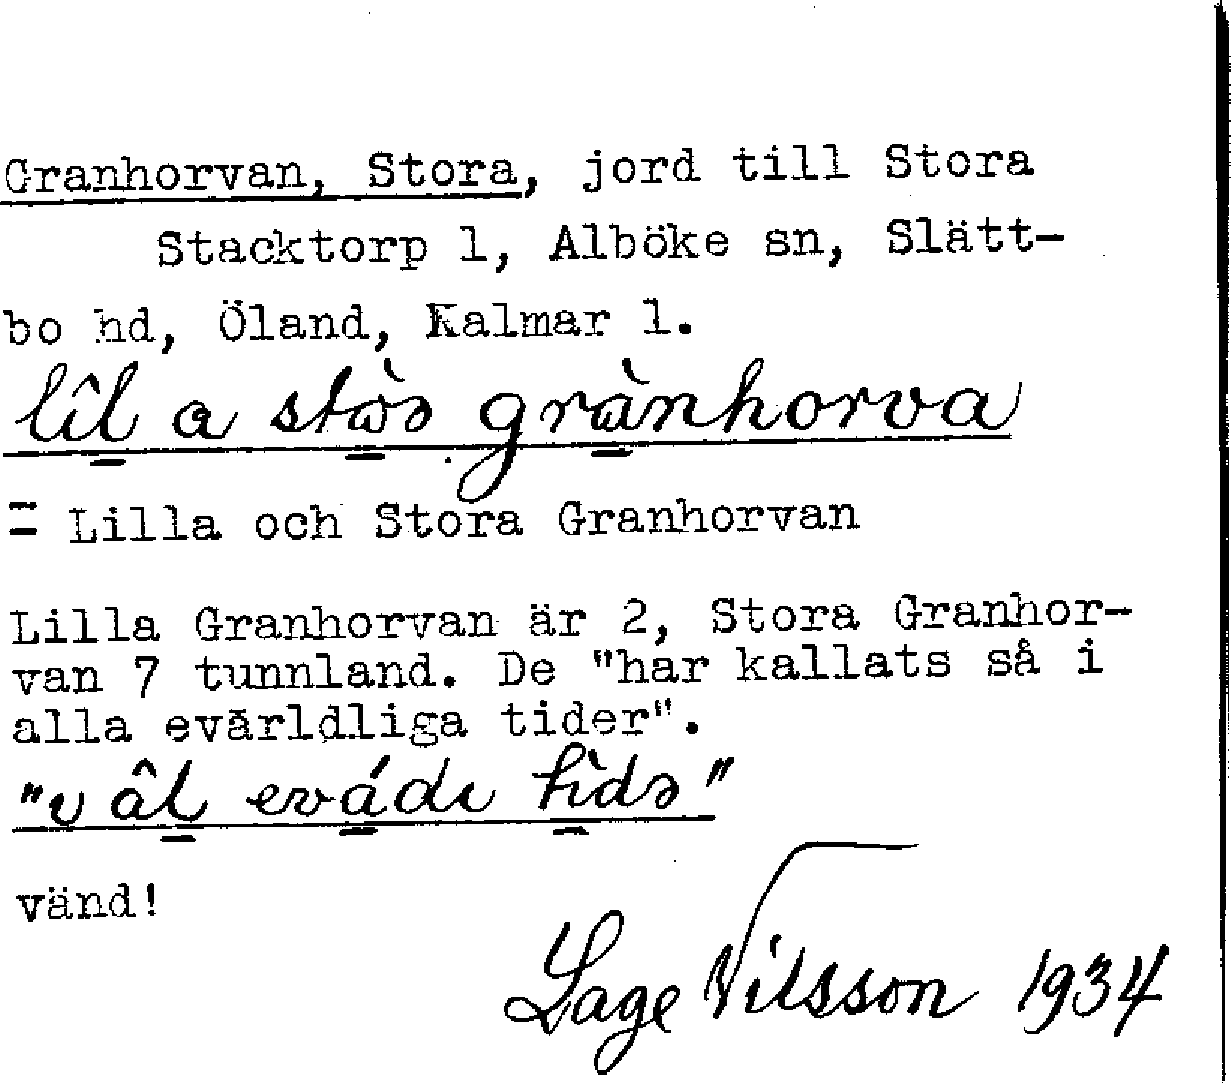 Granhorvan, Stora, jord till Stora
Stacktorp 1, Alböke sn, Slätt-
bo hd, Öland, Kalmar l.
lîl a stòs grànhorva
= Lilla och Stora Granhorvan
Lilla Granhorvan är 2, Stora Granhor-
van 7 tunnland. De "har kallats så i
alla evärldliga tider".
"ı âl evádı tìdə"
vänd!
Sage Nilsson 1934